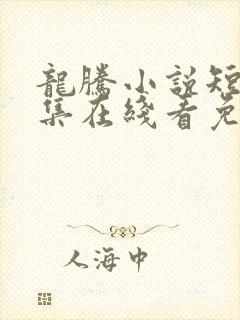 龍騰小説短
集在綫看免
人海中